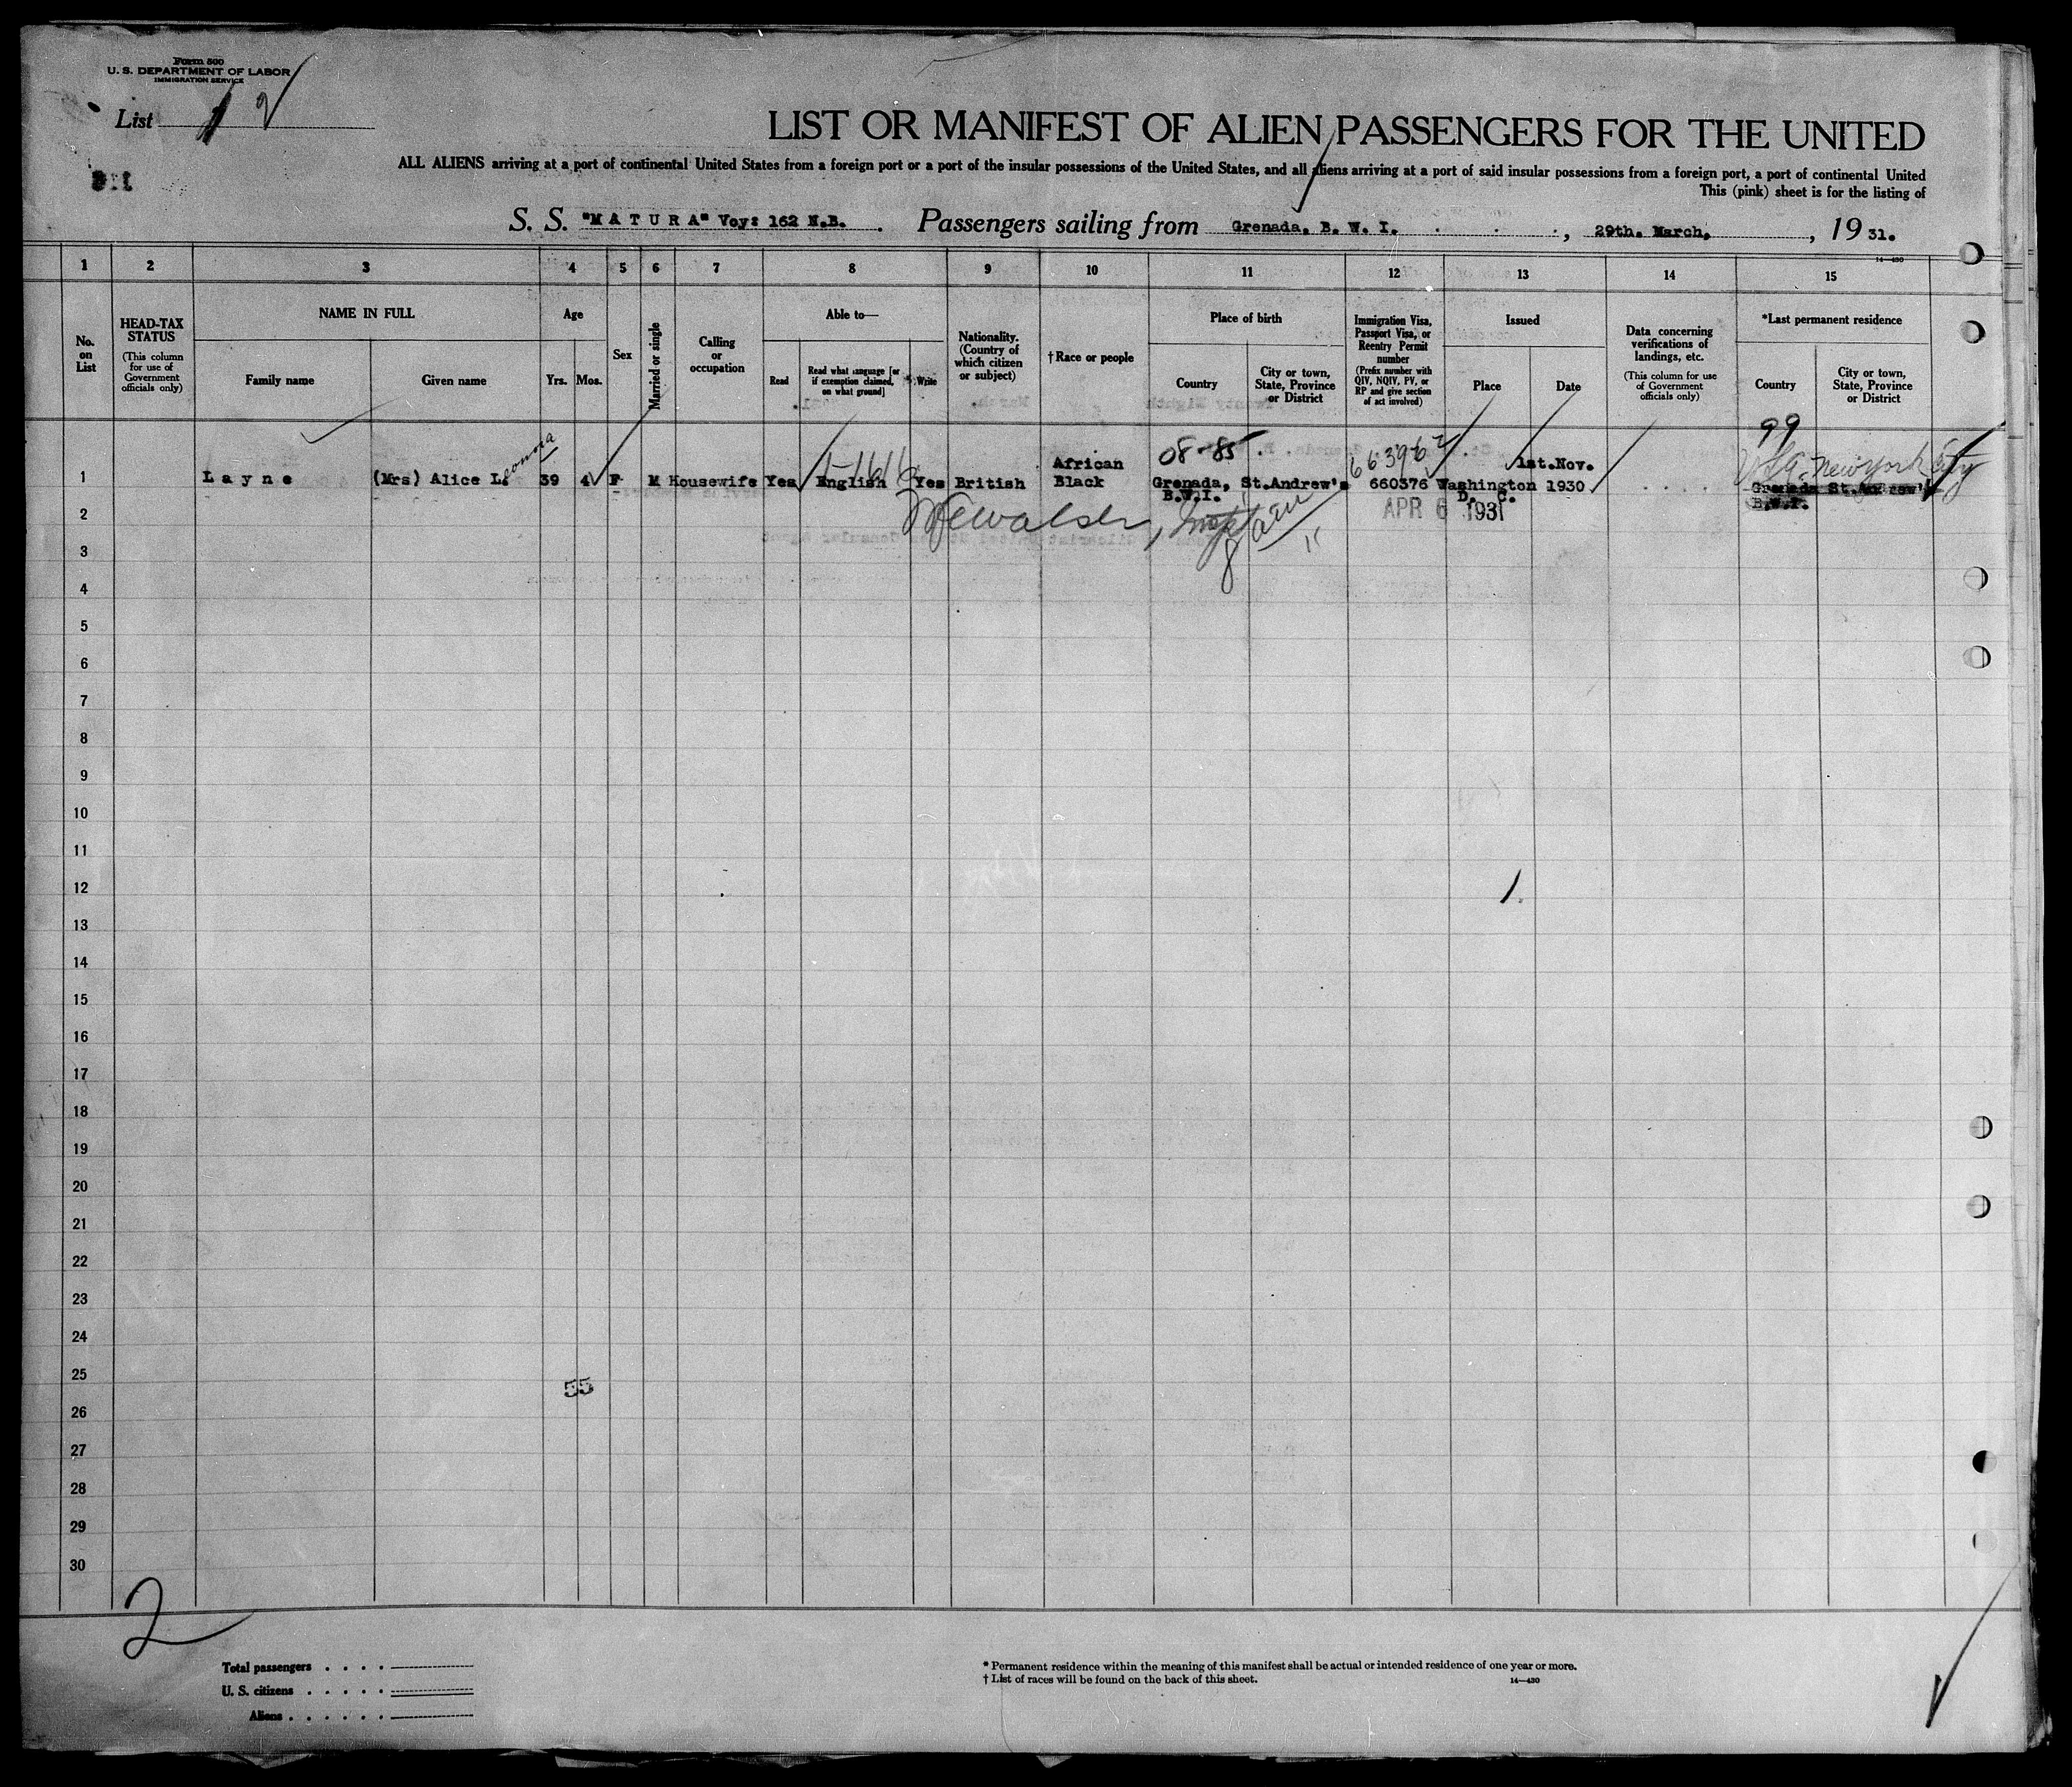 Form 500
U. S. DEPARTMENT OF LABOR
IMMIGRATION SERVICE
List 1 2
LIST OR MANIFEST OF ALIEN PASSENGERS FOR THE UNITED
ALL ALIENS arriving at a port of continental United States from a foreign port or a port of the insular possessions of the United States, and all aliens arriving at a port of said insular possessions from a foreign port, a port of continental United
This (pink) sheet is for the listing of
S. S. "MATURA" Voy: 162 N.B. Passengers sailing from Grenada, B. W. I. , 29th. March, , 19 31.
14—430
1 2 3 4 5 6 7 8 9 10 11 12 13 14 15
No. on List
HEAD-TAX STATUS
(This column for use of Government officials only)
NAME IN FULL
Family name
Given name
Age
Yrs.
Mos.
Sex
Married or single
Calling or occupation
Able to—
Read
Read what language [or if exemption claimed, on what ground]
Write
Nationality. (Country of which citizen or subject)
†Race or people
Place of birth
Country
City or town, State, Province or District
Immigration Visa, Passport Visa, or Reentry Permit number
(Prefix number with QIV, NQIV, PV, or RP and give section of act involved)
Issued
Place
Date
Data concerning verifications of landings, etc.
(This column for use of Government officials only)
*Last permanent residence
Country
City or town, State, Province or District
99
08-85
USA New York City
1 Layne (Mrs) Alice Leonora 39 4 F M Housewife Yes English Yes British African Black Grenada, B.W.I. St.Andrew's 660376 Washington D. C. 1st.Nov. 1930 Grenada B.W.I. St.Andrew's
APR 6 1931
2
3
4
5
6
7
8
9
10
11
12
13
14
15
16
17
18
19
20
21
22
23
24
25
55
26
27
28
29
30
2
Total passengers
U. S. citizens
Aliens
* Permanent residence within the meaning of this manifest shall be actual or intended residence of one year or more.
† List of races will be found on the back of this sheet.
14—430